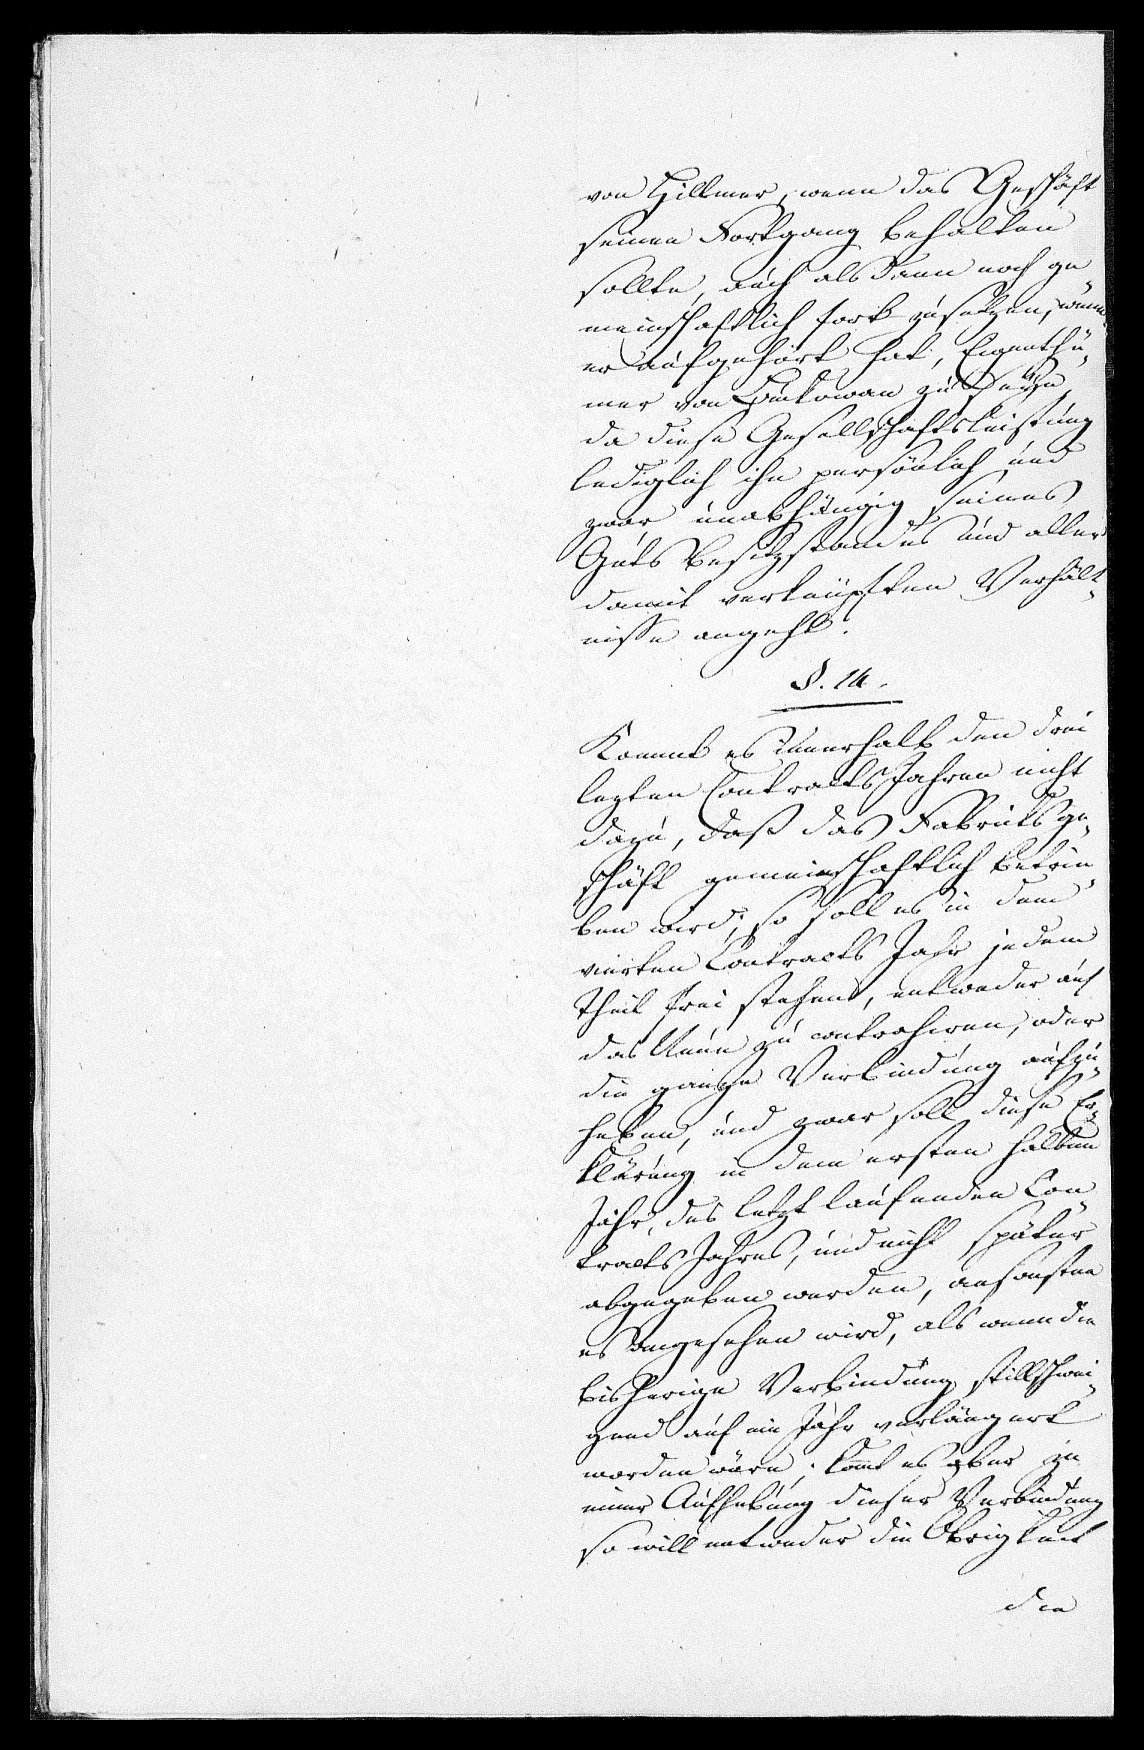 von Hillmer, wenn das Geschäft
seinen Fortgang behalten
sollte, auch alsdann noch ge
meinschaftlich fort zusetzen, wenn
er aufgehört hat, Eigenthü¬
mer von zu seyn,
da diese Gesellschaftsleistung
lediglich ihn persönlich und
zwar unabhängig seines
Guts Besitzstandes und aller
damit verknüpften Verhält¬
nisse angeht.
§. 14.
Kommt es innerhalb den drei
lezten Contracts Jahren nicht
dazu, daß das Fabricks ge¬
schäft gemeinschaftlich betrie¬
ben wird; so soll es in dem
vierten Contracts Jahr jedem
Theil frei stehen, entweder auf
das Neue zu contrahiren, oder
die ganze Verbindung aufzu¬
heben, und zwar soll diese Er¬
klärung in dem ersten halben
Jahr, des letzt laufenden Con¬
tracts Jahres, und nicht später
abgegeben werden, ansonsten
es angesehen wird, als wenn die
bisherige Verbindung stillschwei¬
gend auf ein Jahr verlängert
worden wäre; komt es aber zu
einer Aufhebung dieser Verbindung
so will entweder die Obrigkeit
die